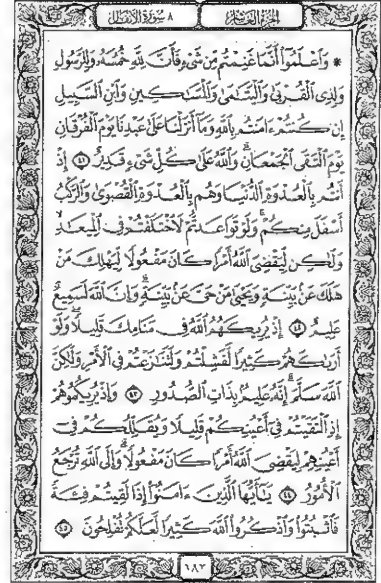 الجزء العاشر
٨ سورة الأنفال
* وَٱعْلَمُوٓا۟ أَنَّمَا غَنِمْتُم مِّن شَىْءٍ فَأَنَّ لِلَّهِ خُمُسَهُۥ وَلِلرَّسُولِ
وَلِذِى ٱلْقُرْبَىٰ وَٱلْيَتَٰمَىٰ وَٱلْمَسَٰكِينِ وَٱبْنِ ٱلسَّبِيلِ
إِن كُنتُمْ ءَامَنتُم بِٱللَّهِ وَمَآ أَنزَلْنَا عَلَىٰ عَبْدِنَا يَوْمَ ٱلْفُرْقَانِ
يَوْمَ ٱلْتَقَى ٱلْجَمْعَانِ ۗ وَٱللَّهُ عَلَىٰ كُلِّ شَىْءٍ قَدِيرٌ ٤١ إِذْ
أَنتُم بِٱلْعُدْوَةِ ٱلدُّنْيَا وَهُم بِٱلْعُدْوَةِ ٱلْقُصْوَىٰ وَٱلرَّكْبُ
أَسْفَلَ مِنكُمْ ۚ وَلَوْ تَوَاعَدتُّمْ لَٱخْتَلَفْتُمْ فِى ٱلْمِيعَٰدِ ۙ
وَلَٰكِن لِّيَقْضِىَ ٱللَّهُ أَمْرًا كَانَ مَفْعُولًا لِّيَهْلِكَ مَنْ
هَلَكَ عَنۢ بَيِّنَةٍ وَيَحْيَىٰ مَنْ حَىَّ عَنۢ بَيِّنَةٍ ۗ وَإِنَّ ٱللَّهَ لَسَمِيعٌ
عَلِيمٌ ٤٢ إِذْ يُرِيكَهُمُ ٱللَّهُ فِى مَنَامِكَ قَلِيلًا ۖ وَلَوْ
أَرَىٰكَهُمْ كَثِيرًا لَّفَشِلْتُمْ وَلَتَنَٰزَعْتُمْ فِى ٱلْأَمْرِ وَلَٰكِنَّ
ٱللَّهَ سَلَّمَ ۗ إِنَّهُۥ عَلِيمٌۢ بِذَاتِ ٱلصُّدُورِ ٤٣ وَإِذْ يُرِيكُمُوهُمْ
إِذِ ٱلْتَقَيْتُمْ فِىٓ أَعْيُنِكُمْ قَلِيلًا وَيُقَلِّلُكُمْ فِىٓ
أَعْيُنِهِمْ لِيَقْضِىَ ٱللَّهُ أَمْرًا كَانَ مَفْعُولًا ۗ وَإِلَى ٱللَّهِ تُرْجَعُ
ٱلْأُمُورُ ٤٤ يَٰٓأَيُّهَا ٱلَّذِينَ ءَامَنُوٓا۟ إِذَا لَقِيتُمْ فِئَةً
فَٱثْبُتُوا۟ وَٱذْكُرُوا۟ ٱللَّهَ كَثِيرًا لَّعَلَّكُمْ تُفْلِحُونَ ٤٥
١٨٢